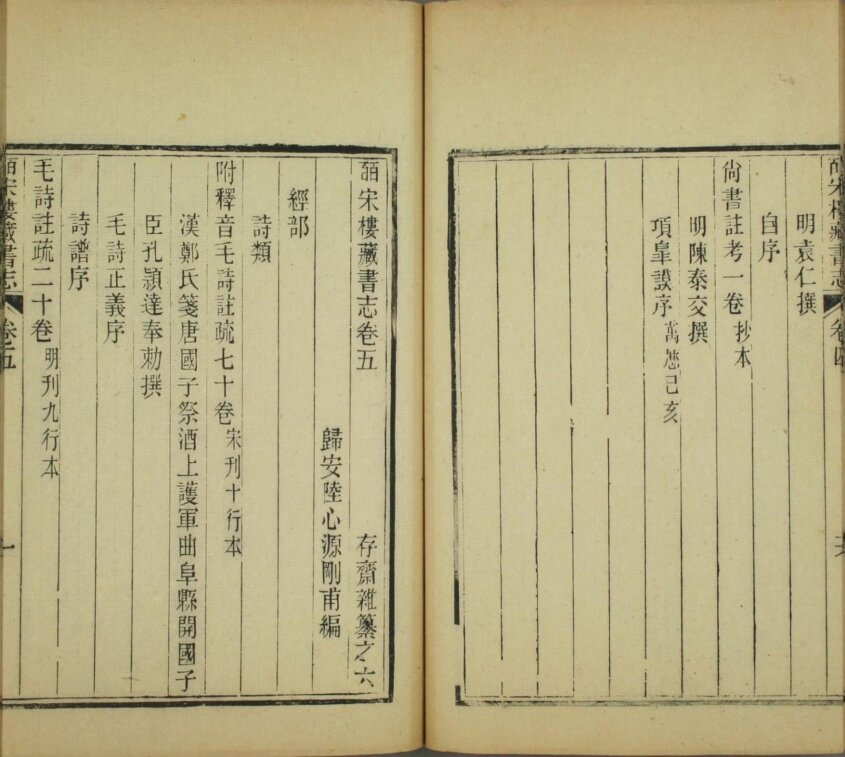 皕宋樓藏書志 卷四
明袁仁撰
自序
尙書註考一卷 抄本
明陳泰交撰
項臯謨序 萬厯己亥
皕宋樓藏書志卷五 存齋雜纂之六
歸安陸心源剛甫編
經部
詩類
附釋音毛詩註疏七十卷 宋刊十行本
漢鄭氏箋唐國子祭酒上護軍曲阜縣開國子
臣孔頴達奉勅撰
毛詩正義序
詩譜序
毛詩註疏二十卷 明刊九行本
皕宋樓藏書志 卷五 一